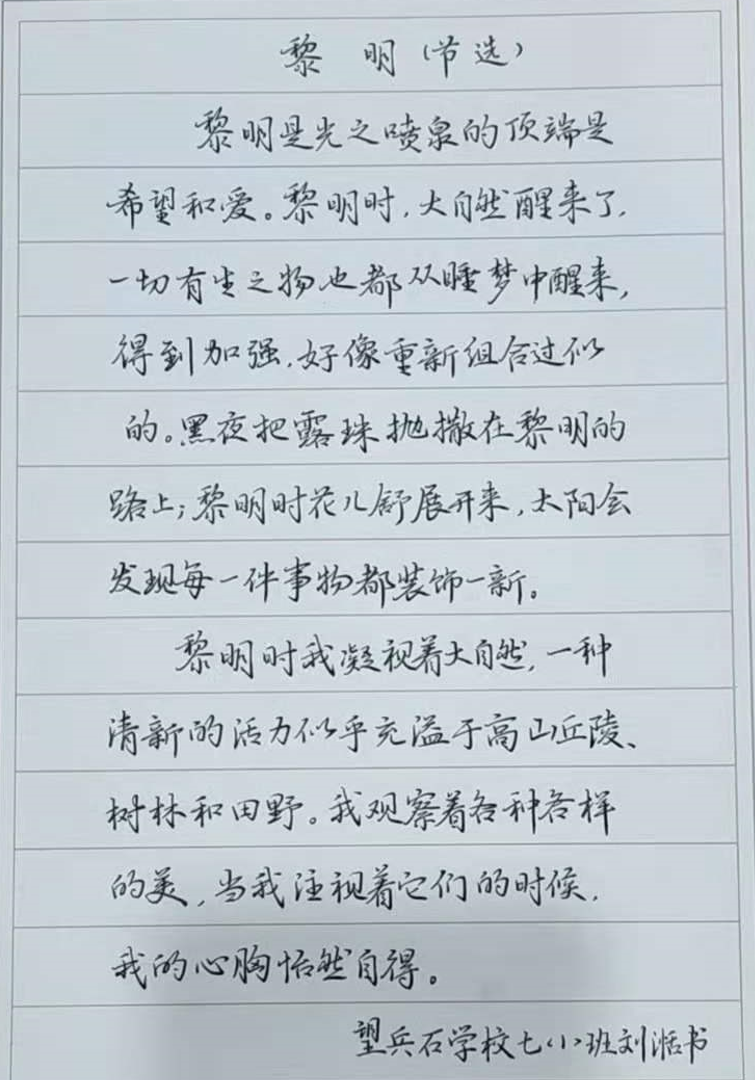 黎明(节选)
黎明是光之喷泉的顶端是
希望和爱。黎明时,大自然醒来了,
一切有生之物也都从睡梦中醒来,
得到加强,好像重新组合过似
的。黑夜把露珠抛撒在黎明的
路上;黎明时花儿舒展开来,太阳会
发现每一件事物都装饰一新。
黎明时我凝视着大自然,一种
清新的活力似乎充溢于高山丘陵、
树林和田野。我观察着各种各样
的美,当我注视着它们的时候,
我的心胸怡然自得。
望兵石学校七(1)班刘湉书